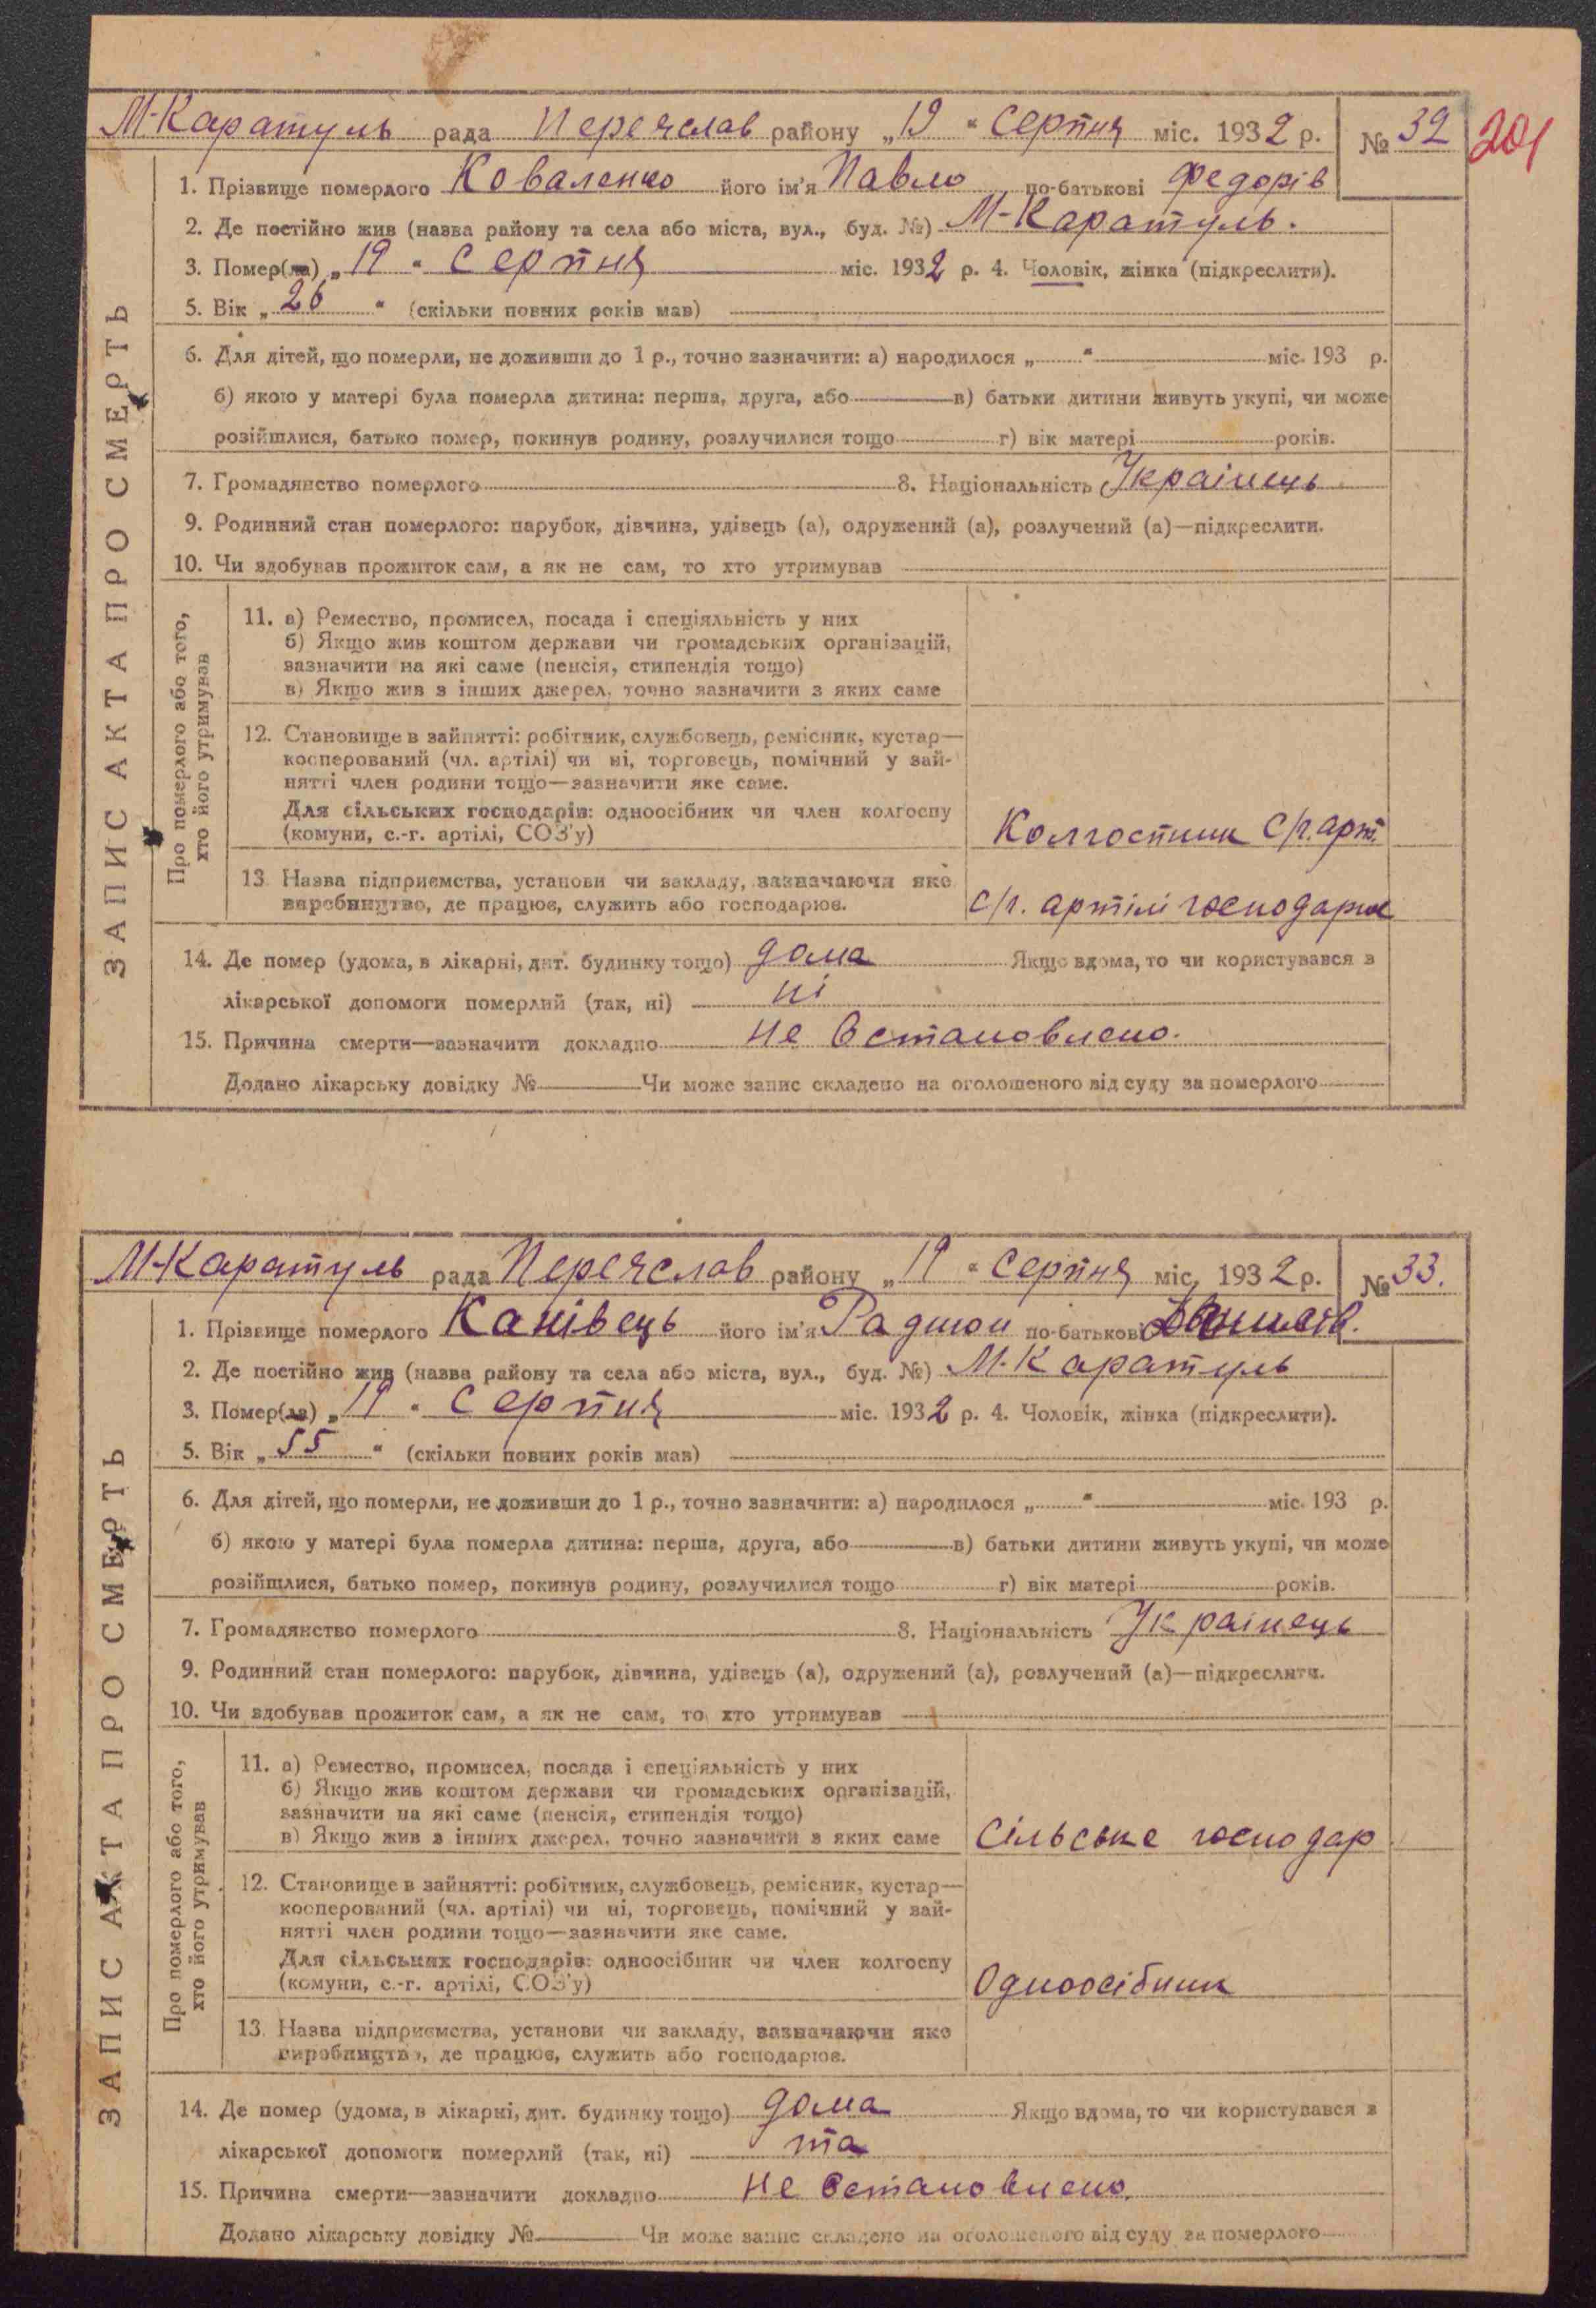 М-Каратуль рада Переяслав району „19“ Серпня міс. 1932 р. № 32
201
1. Прізвище померлого Коваленко його ім'я Павло по-батькові Федорів
2. Де постійно жив (назва району та села або міста, вул., буд. №) М-Каратуль.
3. Помер(ла) „19“ Серпня міс. 1932 р. 4. Чоловік, жінка (підкреслити).
5. Вік „26“ (скільки повних років мав)
6. Для дітей, що померли, не доживши до 1 р., точно зазначити: а) народилося „ “ міс. 193 р.
б) якою у матері була померла дитина: перша, друга, або в) батьки дитини живуть укупі, чи може
розійшлися, батько помер, покинув родину, розлучилися тощо г) вік матері років.
7. Громадянство померлого 8. Національність Українець
9. Родинний стан померлого: парубок, дівчина, удівець (а), одружений (а), розлучений (а)—підкреслити.
10. Чи здобував прожиток сам, а як не сам, то хто утримував
ЗАПИС АКТА ПРО СМЕРТЬ
Про померлого або того,
хто його утримував
11. а) Ремество, промисел, посада і спеціяльність у них
б) Якщо жив коштом держави чи громадських організацій,
зазначити на які саме (пенсія, стипендія тощо)
в) Якщо жив з інших джерел, точно зазначити з яких саме
12. Становище в зайнятті: робітник, службовець, ремісник, кустар—
кооперований (чл. артілі) чи ні, торговець, помічний у зай-
нятті член родини тощо—зазначити яке саме.
Для сільських господарів: одноосібник чи член колгоспу
(комуни, с.-г. артілі, СОЗ'у) Колгоспник с/г. арт.
13. Назва підприємства, установи чи закладу, зазначаючи яке
виробництво, де працює, служить або господарює. с/г. артілі господарює
14. Де помер (удома, в лікарні, дит. будинку тощо) дома Якщо вдома, то чи користувався з
лікарської допомоги померлий (так, ні) ні
15. Причина смерти—зазначити докладно не встановлено.
Додано лікарську довідку № Чи може запис складено на оголошеного від суду за померлого
М-Каратуль рада Переяслав району „19“ Серпня міс. 1932 р. № 33.
1. Прізвище померлого Канівець його ім'я Радион по-батькові
2. Де постійно жив (назва району та села або міста, вул., буд. №) М-Каратуль
3. Помер(ла) „19“ Серпня міс. 1932 р. 4. Чоловік, жінка (підкреслити).
5. Вік „55“ (скільки повних років мав)
6. Для дітей, що померли, не доживши до 1 р., точно зазначити: а) народилося „ “ міс. 193 р.
б) якою у матері була померла дитина: перша, друга, або в) батьки дитини живуть укупі, чи може
розійшлися, батько помер, покинув родину, розлучилися тощо г) вік матері років.
7. Громадянство померлого 8. Національність Українець
9. Родинний стан померлого: парубок, дівчина, удівець (а), одружений (а), розлучений (а)—підкреслити.
10. Чи здобував прожиток сам, а як не сам, то хто утримував
ЗАПИС АКТА ПРО СМЕРТЬ
Про померлого або того,
хто його утримував
11. а) Ремество, промисел, посада і спеціяльність у них
б) Якщо жив коштом держави чи громадських організацій,
зазначити на які саме (пенсія, стипендія тощо)
в) Якщо жив з інших джерел, точно зазначити з яких саме Сільське господар
12. Становище в зайнятті: робітник, службовець, ремісник, кустар—
кооперований (чл. артілі) чи ні, торговець, помічний у зай-
нятті член родини тощо—зазначити яке саме.
Для сільських господарів: одноосібник чи член колгоспу
(комуни, с.-г. артілі, СОЗ'у) Одноосібник
13. Назва підприємства, установи чи закладу, зазначаючи яке
виробництво, де працює, служить або господарює.
14. Де помер (удома, в лікарні, дит. будинку тощо) дома Якщо вдома, то чи користувався з
лікарської допомоги померлий (так, ні) та
15. Причина смерти—зазначити докладно не встановлено.
Додано лікарську довідку № Чи може запис складено на оголошеного від суду за померлого